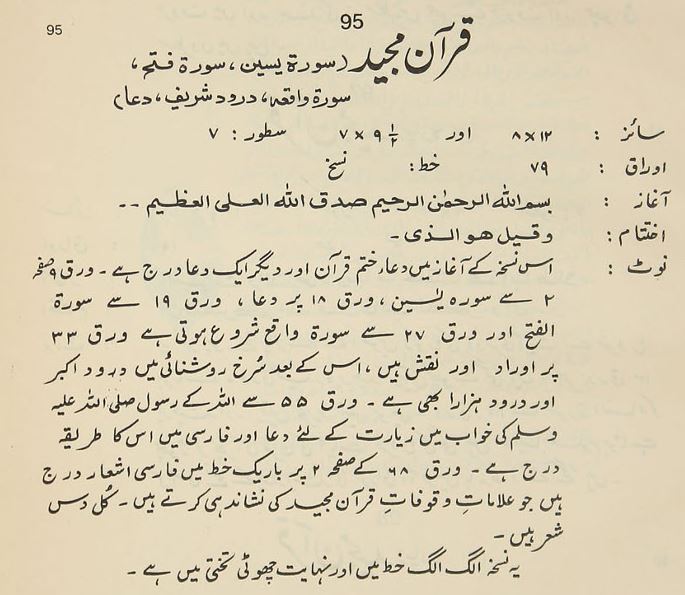 95
95
قرآن مجید (سورۃ یسین، سورۃ فتح،
سورۃ واقعہ، درود شریف، دعا)
سائز : ۸x۱۲ اور ۷ x ۹ ۱/۲ سطور : ۷
اوراق : ۷۹ خط: نسخ
آغاز : بسم الله الرحمٰن الرحیم صدق الله العلی العظیم --
اختتام : وقیل هو الذی -
نوٹ : اس نسخہ کے آغاز میں دعاء ختم قرآن اور دیگر ایک دعا درج ہے - ورق ۹ صفحہ
۲ سے سورہ یٰسین، ورق ۱۸ پر دعا، ورق ۱۹ سے سورۃ
الفتح اور ورق ۲۷ سے سورۃ واقع شروع ہوتی ہے ورق ۳۳
پر اوراد اور نقش ہیں، اس کے بعد سُرخ روشنائی میں درود اکبر
اور درود ہزارا بھی ہے - ورق ۵۵ سے اللہ کے رسول صلی اللہ علیہ
وسلم کی خواب میں زیارت کے لئے دعا اور فارسی میں اس کا طریقہ
درج ہے - ورق ۶۸ کے صفحہ ۲ پر باریک خط میں فارسی اشعار درج
ہیں جو علاماتِ وقوفاتِ قرآن مجید کی نشاندہی کرتے ہیں - کُل دس
شعر ہیں -
یہ نسخہ الگ الگ خط میں اور نہایت چھوٹی تختی میں ہے -